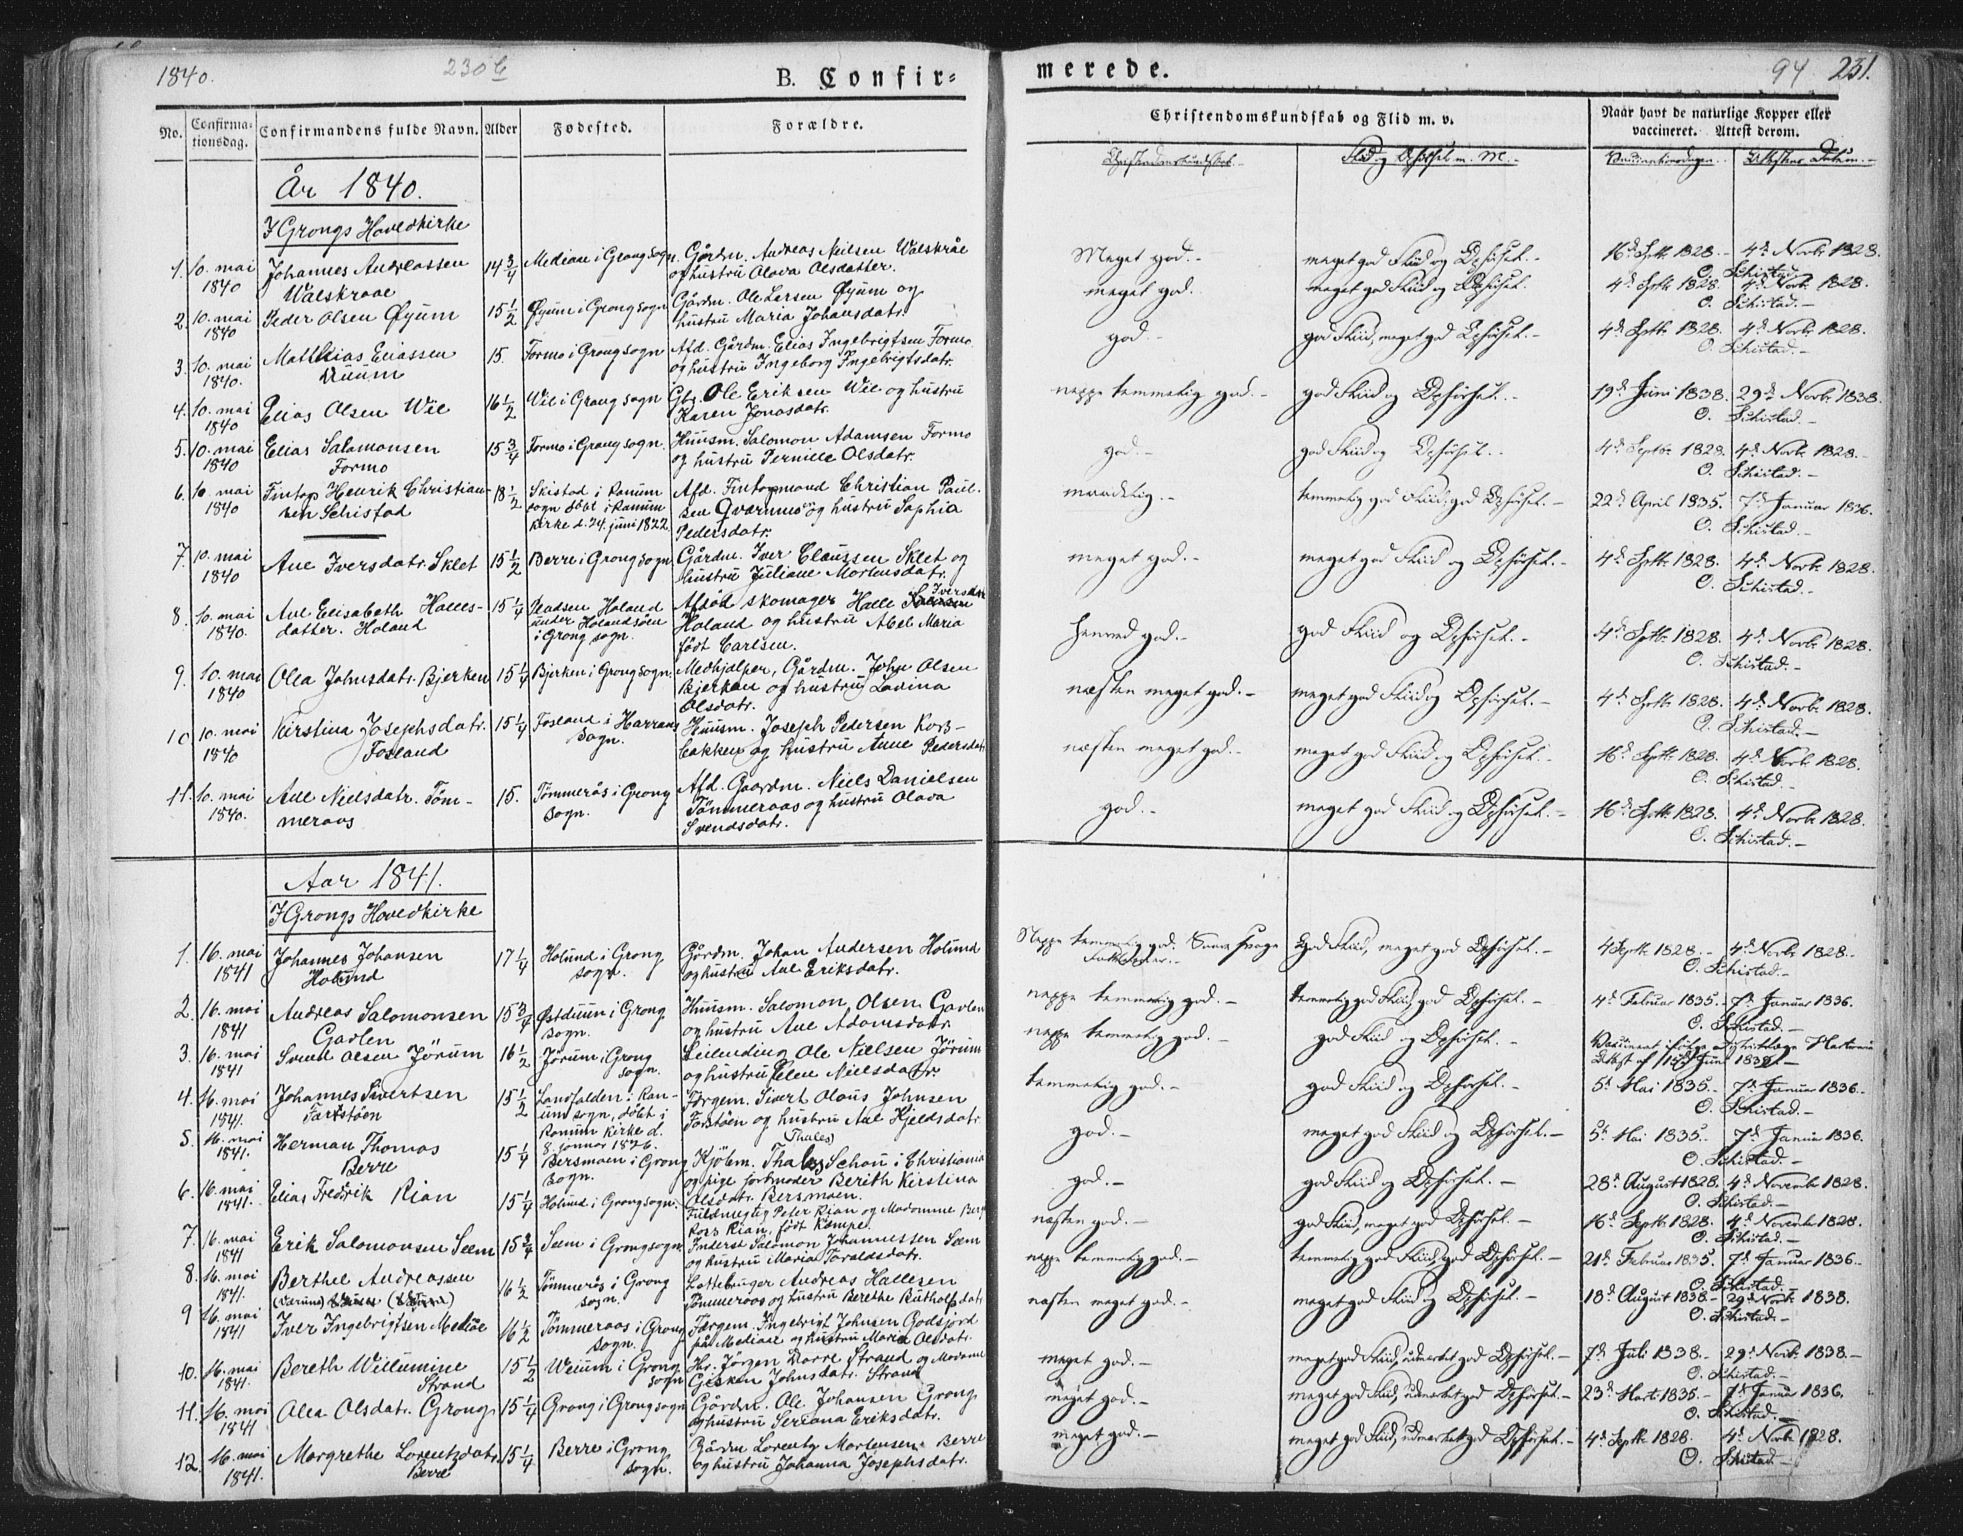 1840.
230 b
B. Confir=
merede.
94 231.
No.
Confirma=
tionsdag.
Confirmandens fulde Navn.
Alder
Fødested.
Forældre.
Christendomskundskab og Flid m. v.
Naar havt de naturlige Kopper eller
vaccineret. Attest derom.
Christendomskundskab.
Flid og Opførsel m. M.
Vaccinationsdagen.
Attestens Datum.
År 1840.
I Grongs Hovedkirke
1. 10. mai 1840 Johannes Andreassen Walskraae 14 3/4 Mediaae i Grong sogn. Gårdm. Andreas Nielsen Walskråe og hustru Olava Olsdatter. Meget god. meget god Fliid og Opførsel. 16d Sptb. 1828. 4d Novb. 1828. O. Schistad.
2. 10. mai 1840 Peder Olsen Øyum 15 1/2 Øyum i Grong sogn Gårdm. Ole Larsen Øyum og hustru Maria Johansdatr. meget god. meget god Fliid og Opførsel. 4d Sptb. 1828. 4d Novb. 1828. O. Schistad.
3. 10. mai 1840. Matthias Eliassen Duum 15. Formo i Grong sogn Afd. Gårdm. Elias Ingebrigtsen Formo og hustru Ingeborg Ingebrigtsdatr. god. god Fliid, meget god Opførsel. 4d Septb. 1828. 4d Novbr. 1828. O. Schistad.
4. 10. mai 1840 Elias Olsen Wie 16 1/2 Wie i Grong sogn Ole Eriksen Wie og hustru Karen Jonasdatr. neppe temmelig god. god Fliid og Opførsel. 19d Juni 1838. 29d Novb. 1838. O. Schistad.
5. 10. mai 1840 Elias Salamonsen Formo 15 3/4 Formo i Grong sogn. Huusm. Salomon Adamsen Formo og hustru Pernille Olsdatr. god. god Fliid og Opførsel. 4d Septb. 1828. 4d Novb. 1828. O. Schistad.
6. 10. mai 1840 Fintop Henrik Christian- sen Schistad 18 1/2 Skistad i Ranum sogn døbt i Ranum kirke d. 24. juni 1822 Afd. Christian Paul- sen og hustru Sophia Pedersdatr. maadelig. temmelig god Fliid, god Opførsel. 22d April 1835. 7d Januar 1836. O. Schistad.
7. 10. mai 1840 Ane Iversdatr. Sklet 15 1/2 Berre i Grong sogn Gårdm. Iver Claussen Sklet og hustru Juliane Mortensdatr. meget god. meget god Fliid og Opførsel. 4d Sptb. 1828. 4d Novb. 1828. O. Schistad.
8. 10. mai 1840. Ane Elisabeth Halles- datter. Holand 15 1/4 Holand under Holandsøen i Grong sogn. Afdød skomager Halle Iversen Holand og hustru Abel Maria født Carlsen. henved god. god Fliid og Opførsel. 4d Sptb. 1828. 4d Novb. 1828. O. Schistad.
9. 10. mai 1840 Olea Johnsdatr. Bjerken 15 1/4 Bjerken i Grong sogn. Medhjelper, Gårdm. John Olsen Bjerken og hustru Lovina Olsdatr. næsten meget god. meget god Fliid og Opførsel. 4d Sptb. 1828. 4d Novb. 1828. O. Schistad.
10 10. mai 1840 Kirstina Josephsdatr. Fosland 15 1/4 Fosland i Harrans sogn. Huusm. Joseph Pedersen Kors- bakken og hustru Anne Pedersdatr. næsten meget god. meget god Fliid og Opførsel. 16d Sptb. 1828. 4d Novb. 1828. O. Schistad.
11. 10. mai 1840. Ane Nielsdatr. Töm- meraas 15. Tømmerås i Grong sogn. Afd. Gaardm. Niels Danielsen Tömmeraas og hustru Olava Svendsdatr. god. meget god Fliid og Opførsel. 16d Sptb. 1828. 4d Novb. 1828. O. Schistad.
Aar 1841.
I Grongs Hovedkirke
1. 16. mai 1841 Johannes Johansen Holund 17 1/4 Holund i Grong sogn. Gårdm. Johan Andersen Holund og hustru Ane Eriksdatr. Neppe temmelig god. God Fliid, meget god Opførsel. 4 Septb. 1828. 4d Novb. 1828. O. Schistad.
2. 16. mai 1841 Andreas Salomonsen Gavlen 15 3/4 Østduun i Grong sogn. Huusm. Salomon Olsen Gavlen og hustru Ane Adamsdatr. neppe temmelig god. temmelig god Fliid, god Opførsel. 4d Februar 1835. 7d Januar 1836. O. Schistad.
3. 16. mai 1841 Svend Olsen Jörum 16 1/2 Jörum i Grong sogn. Leilending Ole Nielsen Jörum og hustru Elen Nielsdatr. neppe temmelig god. god Fliid og Opførsel.
4. 16. mai 1841. Johannes Sivertsen 15 1/2 Landfalden i Ran- um sogn, døbt i Ranum kirke d. 8. januar 1826. Færgem. Sivert Olaus Johnsen og hustru Ane Kjeldsdatr. temmelig god. god Fliid og Opførsel. 5d Mai 1835. 7d Januar 1836. O. Schistad.
5. 16. mai 1841. Herman Thomas Berre 15 1/4 Bersmoen i Grong sogn. Kjøbm. (Thales) Schou i Christiania og pige Berith Kirstina Olsdatr. Bersmoen. god. meget god Fliid og Opførsel. 5d Mai 1835. 7d Januar 1836. O. Schistad.
6. 16. mai 1841. Elias Fredrik Rian 15 1/4 Holund i Grong sogn. Fuldmegtig Peter Rian og Madamme Rian, født Kæmpe. god. god Fliid og Opførsel. 28d August 1828. 4d Novemb. 1828. O. Schistad.
7. 16. mai 1841 Erik Salomonsen Seem 15 3/4 Seem i Grong sogn Inderst Salomon Johannessen Seem og hustru Maria Toraldsdatr. næsten god. god Fliid, meget god Opførsel. 16d Septb. 1828. 4d Novemb. 1828. O. Schistad.
8. 16. mai 1841. Berthel Andreassen (Værum) 16 1/2 Tømmerås i Grong sogn. Andreas Hallesen Tömmeraas og hustru Berethe neppe temmelig god. temmelig god Fliid, god Opførsel. 21d Februar 1835. 7d Januar 1836. O. Schistad.
9 16. mai 1841 Iver Ingebrigtsen Mediåe 16 1/2 Tömmeraas i Grong sogn. Færgem. Ingebrigt Johnsen Godsfjord på Mediaae og hustru Maria Olsdatr. næsten meget god. meget god Fliid og Opførsel. 18d August 1838. 29d Novb. 1838. O. Schistad.
10. 16. mai 1841. Bereth Willumine Strand 15 1/2 Weium i Grong sogn Hr. Jörgen Dorre Strand og Madame Gisken Johnsdatr. Strand meget god. meget god Fliid, udmærket god Opførsel. 7d Juli 1838. 29d Novb. 1838. O. Schistad.
11. 16. mai 1841 Olea Olsdatr. Grong 15 1/4 Grong i Grong sogn Gårdm. Ole Johansen Grong og hustru Seriana Eriksdatr. meget god. meget god Fliid, udmærket god Opførsel. 23d Marts 1835. 7d Januar 1836. O. Schistad.
12. 16. mai 1841. Margrethe Lorentzdatr. Berre 15 1/4 Berre i Grong sogn. Gårdm Lorentz Mortensen Berre og hustru Johanna Josephsdatr. meget god. meget god Fliid, udmærket god Opførsel. 4d Septb. 1828. 4d Novb. 1828. O. Schistad.